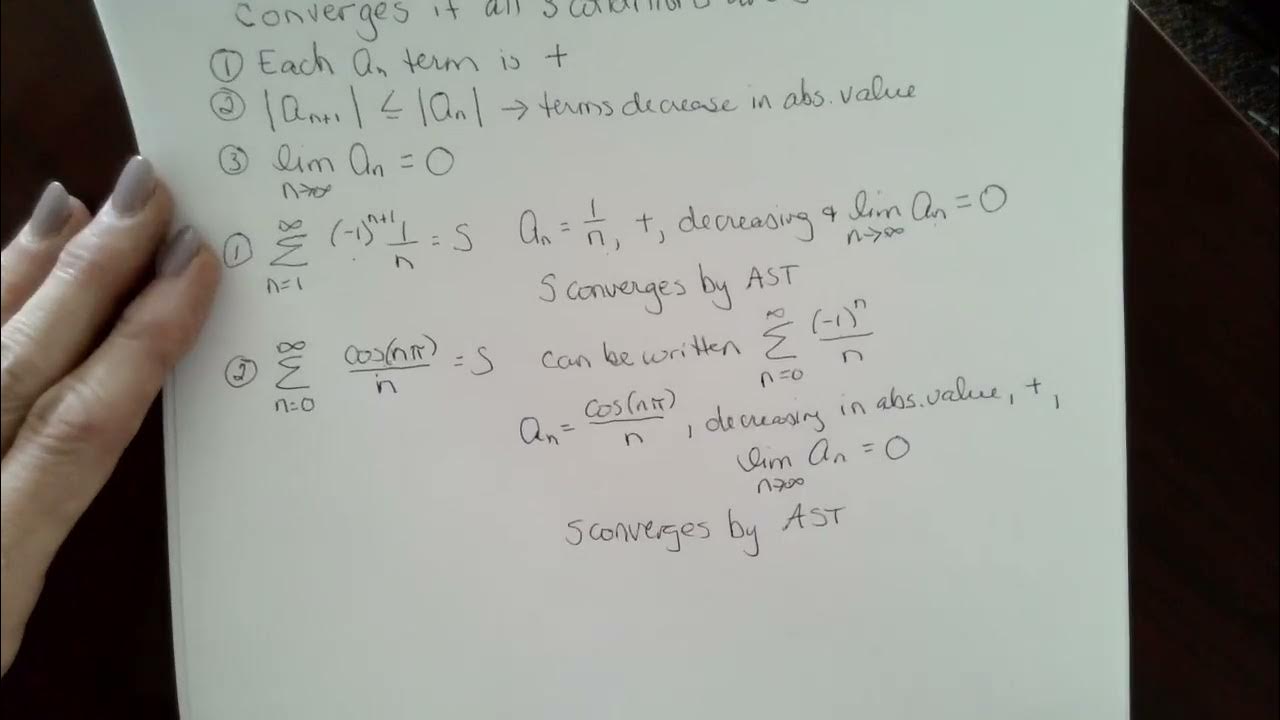 converges if all 3 conditions are
① Each aₙ term is +
② |aₙ₊₁| ≤ |aₙ| → terms decrease in abs. value
③ lim aₙ = 0
n→∞
① ∞ Σ n=1 (-1)ⁿ⁺¹ 1/n = S aₙ = 1/n, +, decreasing & lim n→∞ aₙ = 0
S converges by AST
② ∞ Σ n=0 cos(nπ)/n = S can be written ∞ Σ n=0 (-1)ⁿ/n
aₙ = cos(nπ)/n, decreasing in abs. value, +,
lim aₙ = 0
n→∞
S converges by AST